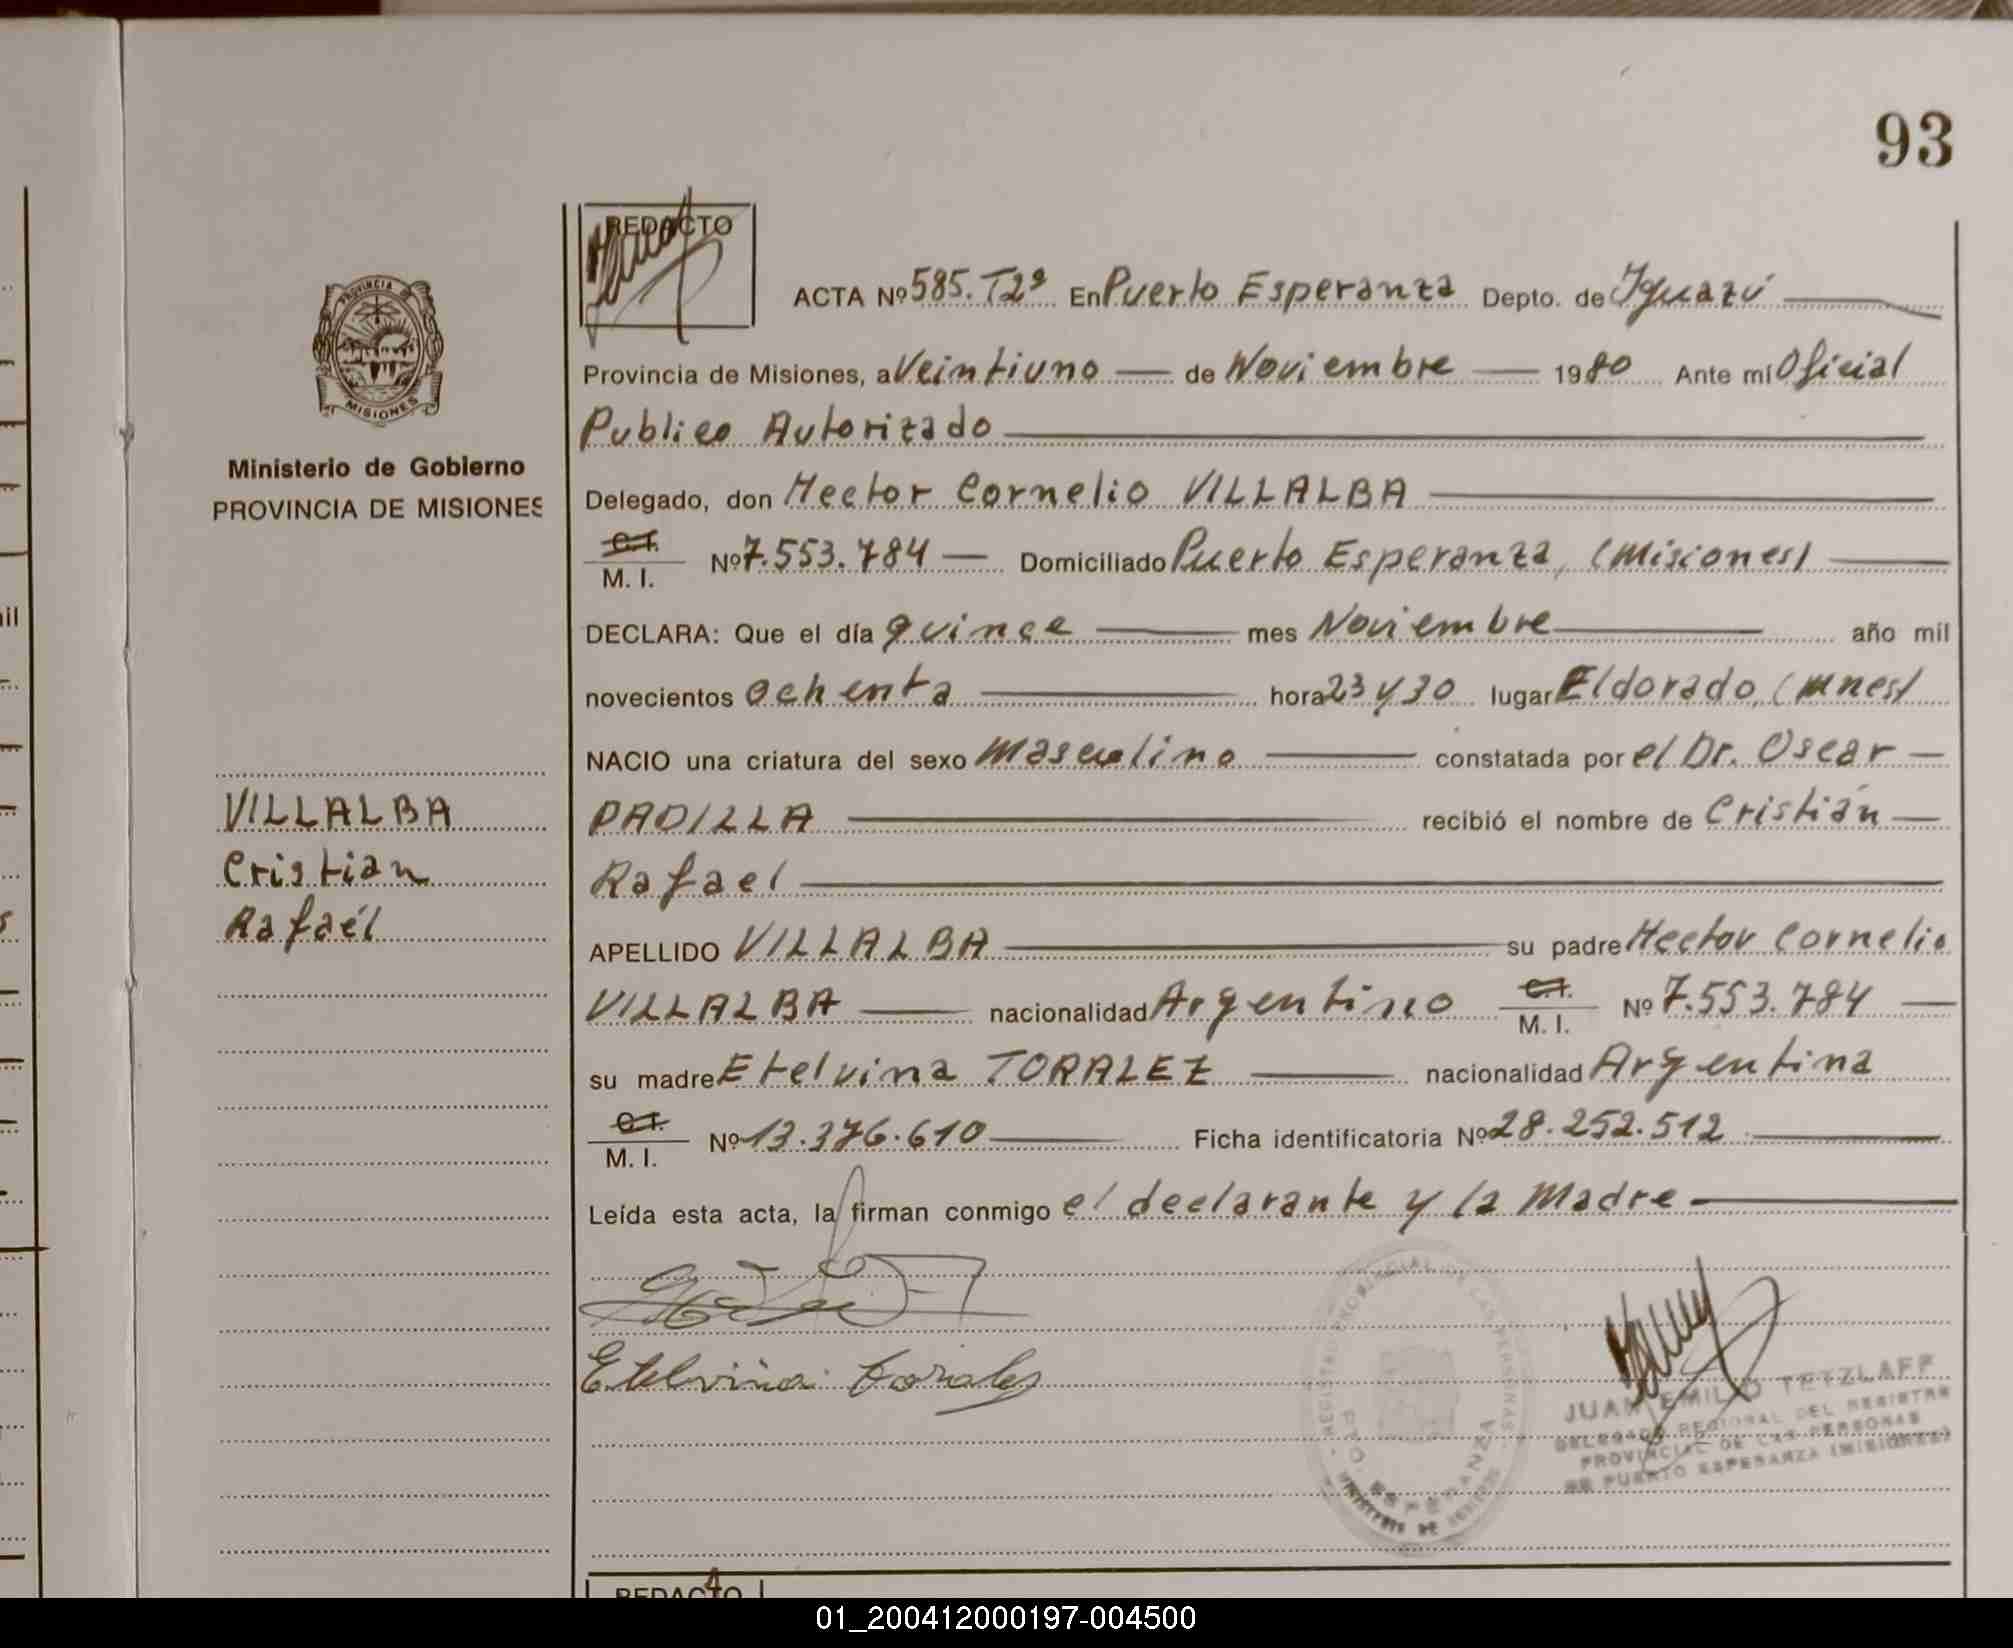 93
REDACTO
ACTA Nº 585. T2º En Puerto Esperanza Depto. de Iguazú
PROVINCIA
MISIONES
Ministerio de Gobierno
PROVINCIA DE MISIONES
Provincia de Misiones, a Veintiuno de Noviembre 1980 Ante mí Oficial
Publico Autorizado
Delegado, don Hector Cornelio VILLALBA
C.I. M. I. Nº 7.553.784 Domiciliado Puerto Esperanza, (Misiones)
DECLARA: Que el día quince mes Noviembre año mil
novecientos ochenta hora 23 y 30 lugar Eldorado, (Mnes)
NACIO una criatura del sexo Masculino constatada por el Dr. Oscar
PADILLA recibió el nombre de Cristián
Rafael
VILLALBA
Cristian
Rafaél
APELLIDO VILLALBA su padre Hector Cornelio
VILLALBA nacionalidad Argentino C.I. M. I. Nº 7.553.784
su madre Etelvina TORALEZ nacionalidad Argentina
C.I. M. I. Nº 13.376.610 Ficha identificatoria Nº 28.252.512
Leída esta acta, la firman conmigo el declarante y la Madre
Etelvina Torales
REGISTRO PROVINCIAL DE LAS PERSONAS
PTO. ESPERANZA
MINISTERIO DE GOBIERNO
JUAN EMILIO TETZLAFF
DELEGADO REGIONAL DEL REGISTRO
PROVINCIAL DE LAS PERSONAS
DE PUERTO ESPERANZA (MISIONES)
REDACTO
01_200412000197-004500